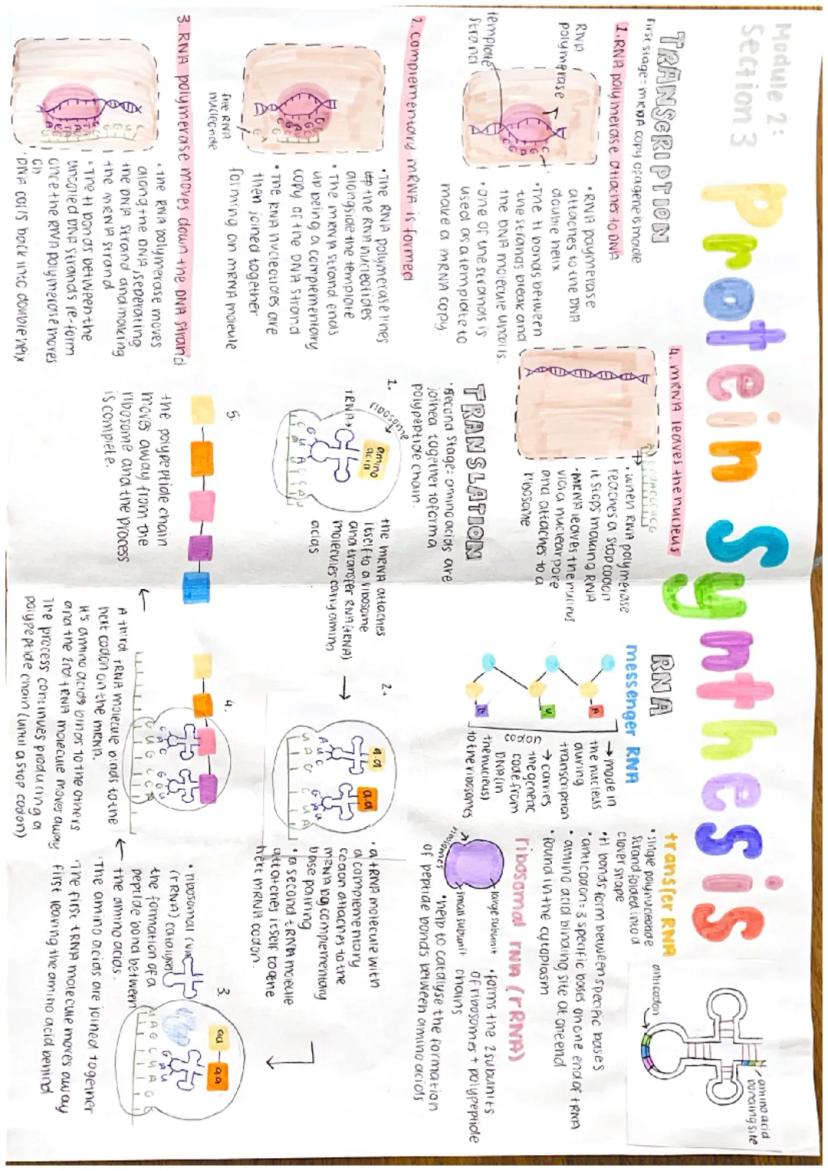 Module 2:
Section 3
Protein Synthesis
TRANSCRIPTION
First stage: mRNA copy of a gene is made
1. RNA polymerase attaches to DNA
RNA
polymerase
template
strand
• RNA polymerase
attaches to the DNA
double helix
• The H bonds between
the strands break and
the DNA molecule uncoils.
• One of the strands is
used as a template to
make a mRNA copy
2. Complementary mRNA is formed
the RNA
nucleotide
• The RNA polymerase lines
up the RNA nucleotides
alongside the template
• The mRNA strand ends
up being a complementary
copy of the DNA strand
• The RNA nucleotides are
then joined together
forming an mRNA molecule
3. RNA polymerase moves down the DNA strand
• the RNA polymerase moves
along the DNA seperating
the DNA strand and making
the mRNA strand
• The H bonds between the
uncoiled DNA strands re-form
once the RNA polymerase moves
on
DNA coils back into double helix
4. mRNA leaves the nucleus
• when RNA polymerase
reaches a stop codon
it stops making RNA
• mRNA leaves the nucleus
via a nuclear pore
and attaches to a
ribosome
TRANSLATION
• Second stage: amino acids are
joined together to form a
polypeptide chain.
1.
ribosome
tRNA
amino
acid
the mRNA attaches
itself to a ribosome
and transfer RNA (tRNA)
molecules carry amino
acids
2.
aa
aa
UAC
• a tRNA molecule with
a complementary
codon attaches to the
mRNA by complementary
base pairing
• a second tRNA molecule
attaches itself to the
next mRNA codon.
3.
aa
aa
• ribosomal RNA
(rRNA) catalyses
the formation of a
peptide bond between
the amino acids.
• The amino acids are joined together
• The first tRNA molecule moves away
first leaving the amino acid behind
4.
A third tRNA molecule binds to the
next codon on the mRNA.
It's amino acids binds to the others
and the 2nd tRNA molecule moves away
The process continues producing a
polypeptide chain (until a stop codon)
5.
the polypeptide chain
moves away from the
ribosome and the process
is complete.
RNA
messenger RNA
A
U
codon
→ made in
the nucleus
during
transcription
→ carries
the genetic
code from
DNA (in
the nucleus)
to the ribosomes
transfer RNA
• single polynucleotide
strand folded into a
clover shape
• H bonds form between specific bases
• anticodon: 3 specific bases on one end of tRNA
• amino acid binding site at one end
• found in the cytoplasm
anticodon
amino acid
bonding site
ribosomal rna (rRNA)
ribosomes
large subunit
small subunit
• forms the 2 subunits
of ribosomes + polypeptide
chains
• help to catalyse the formation
of peptide bonds between amino acids